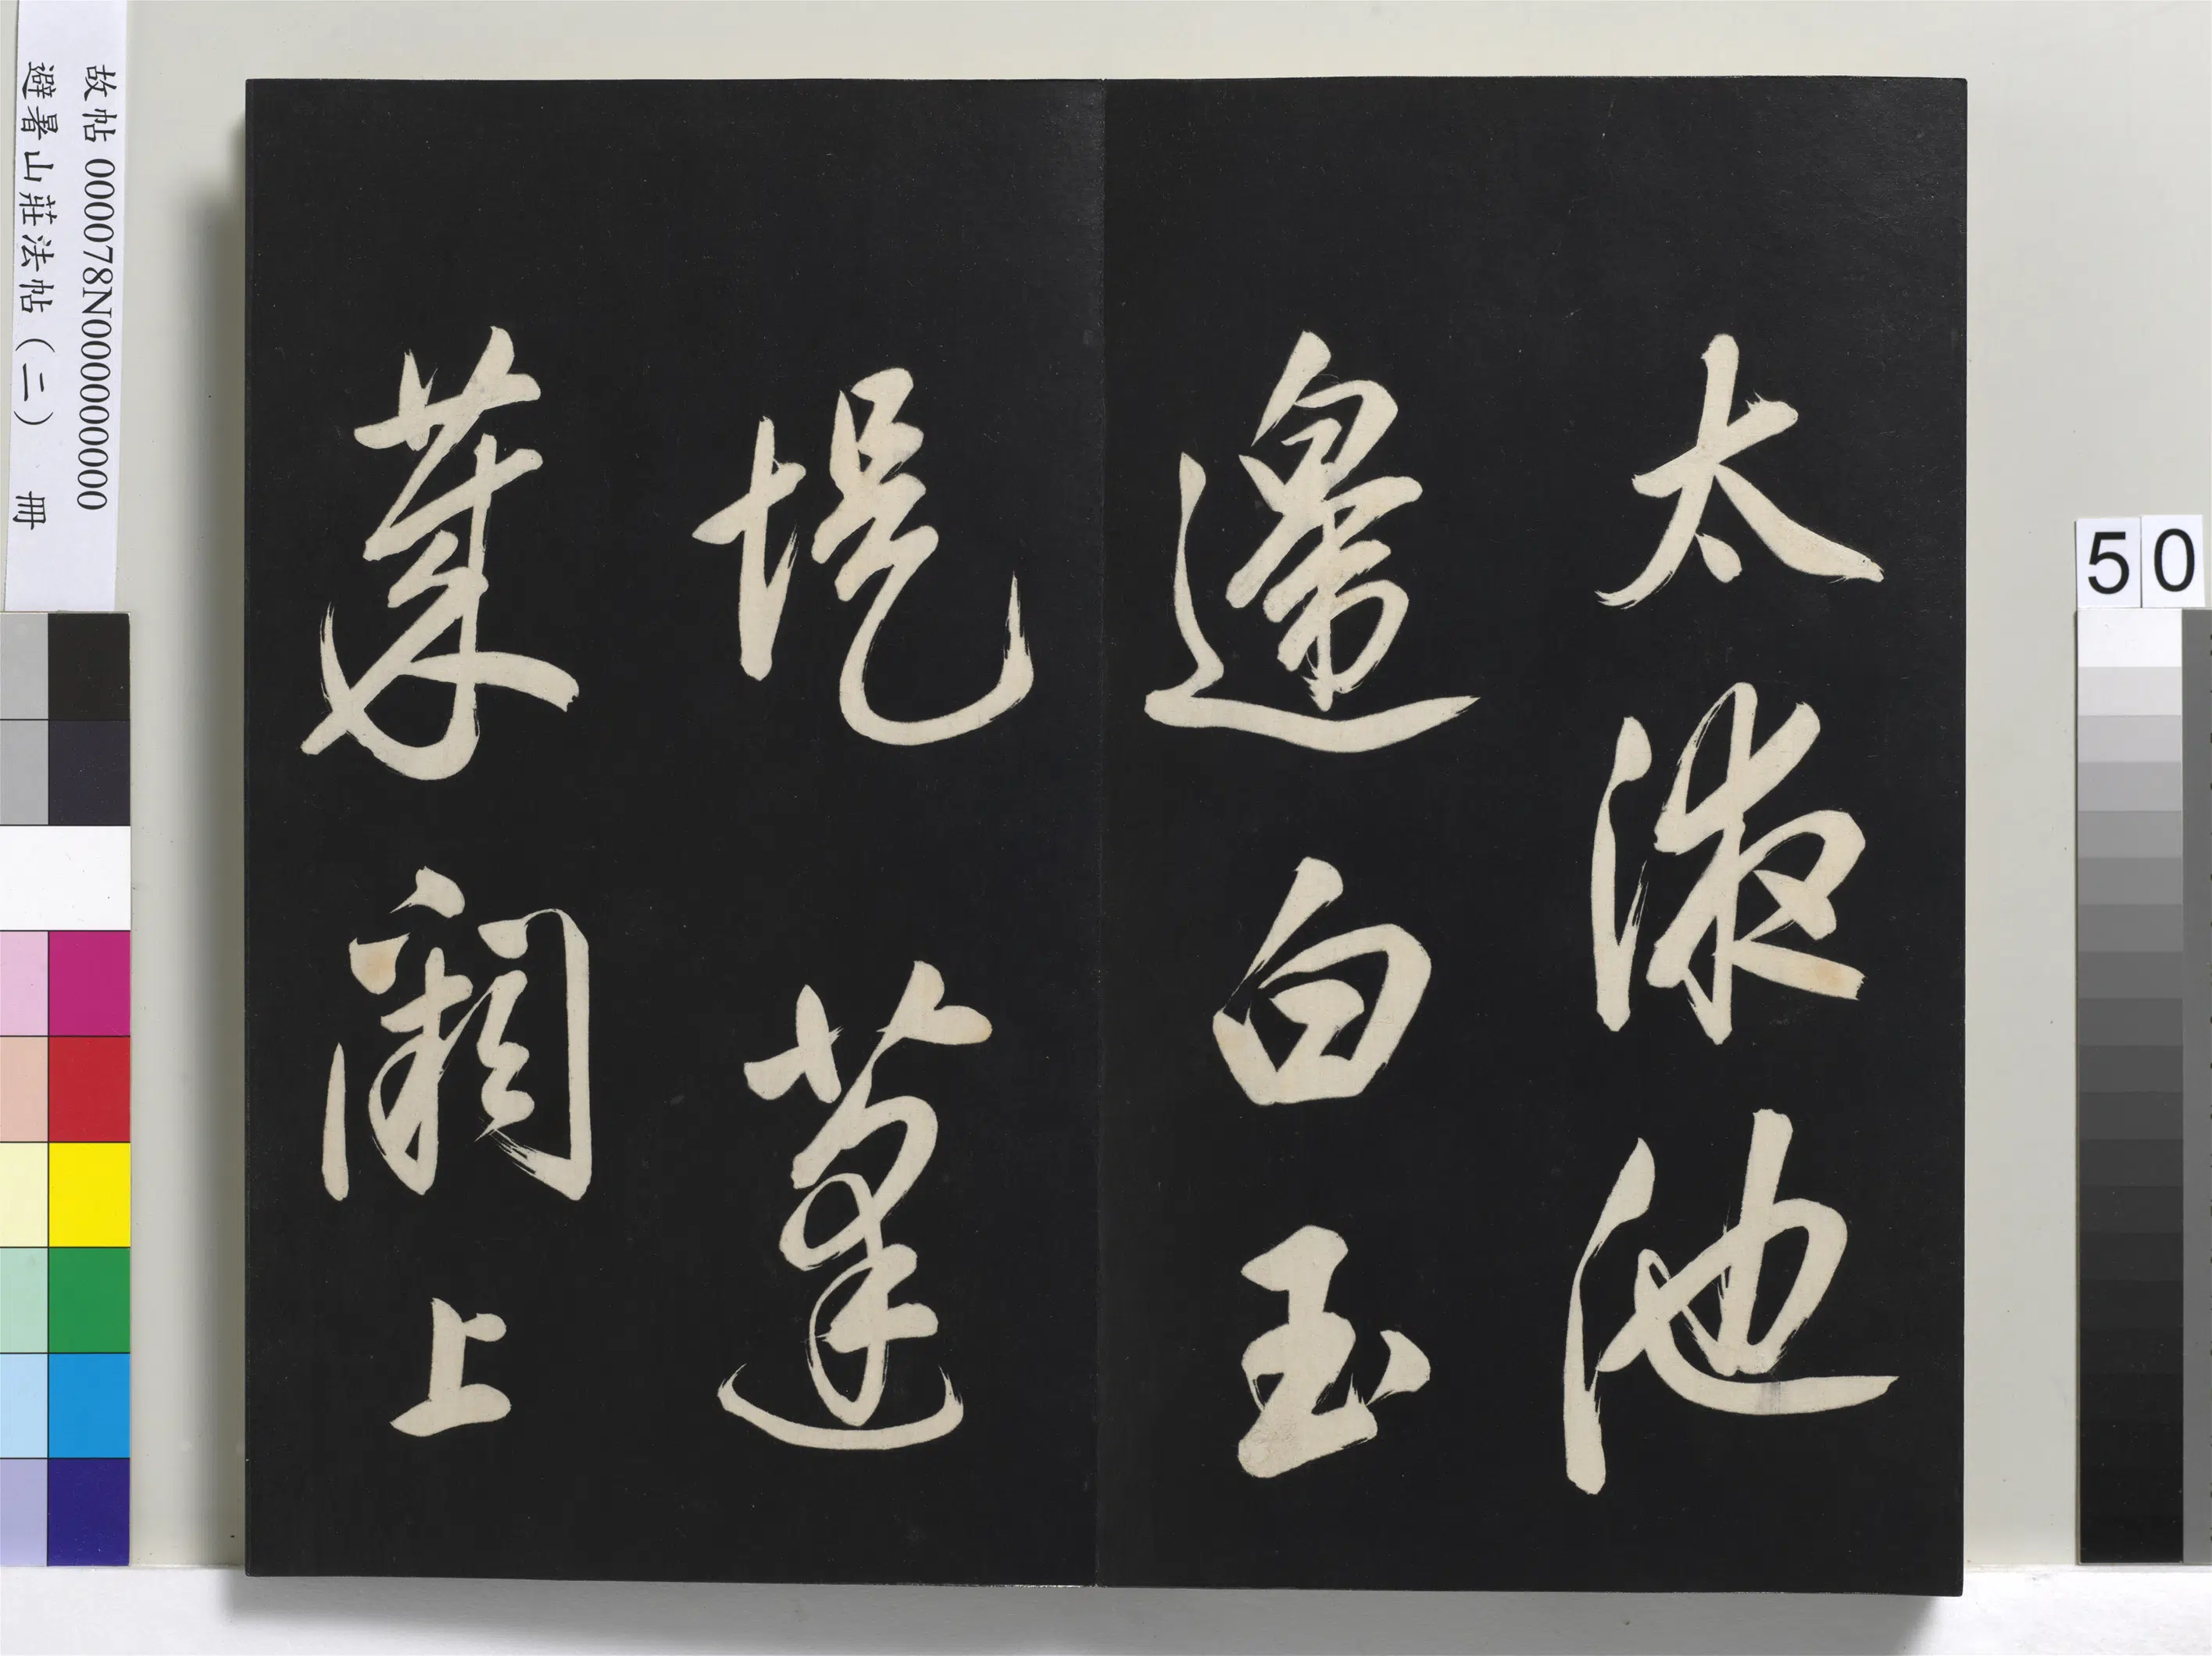 太液池
邊白玉
堤蓬
萊閣上
故帖 000078N000000000
避暑山莊法帖（二） 冊
50